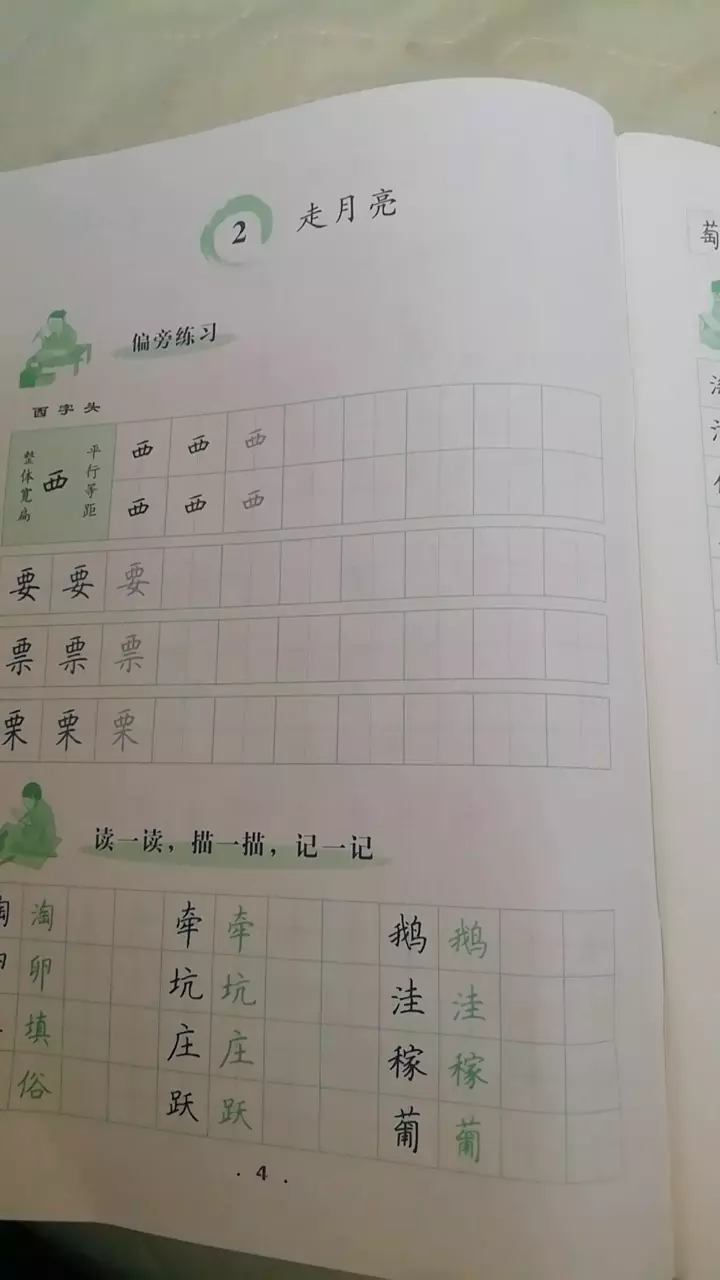 2 走月亮
偏旁练习
覀字头
整体宽扁 覀 平行等距 覀 覀 覀
覀 覀 覀
要 要 要
票 票 票
栗 栗 栗
读一读，描一描，记一记
淘 牵 牵 鹅 鹅
卵 坑 坑 洼 洼
填 庄 庄 稼 稼
俗 跃 跃 葡 葡
·4·
萄